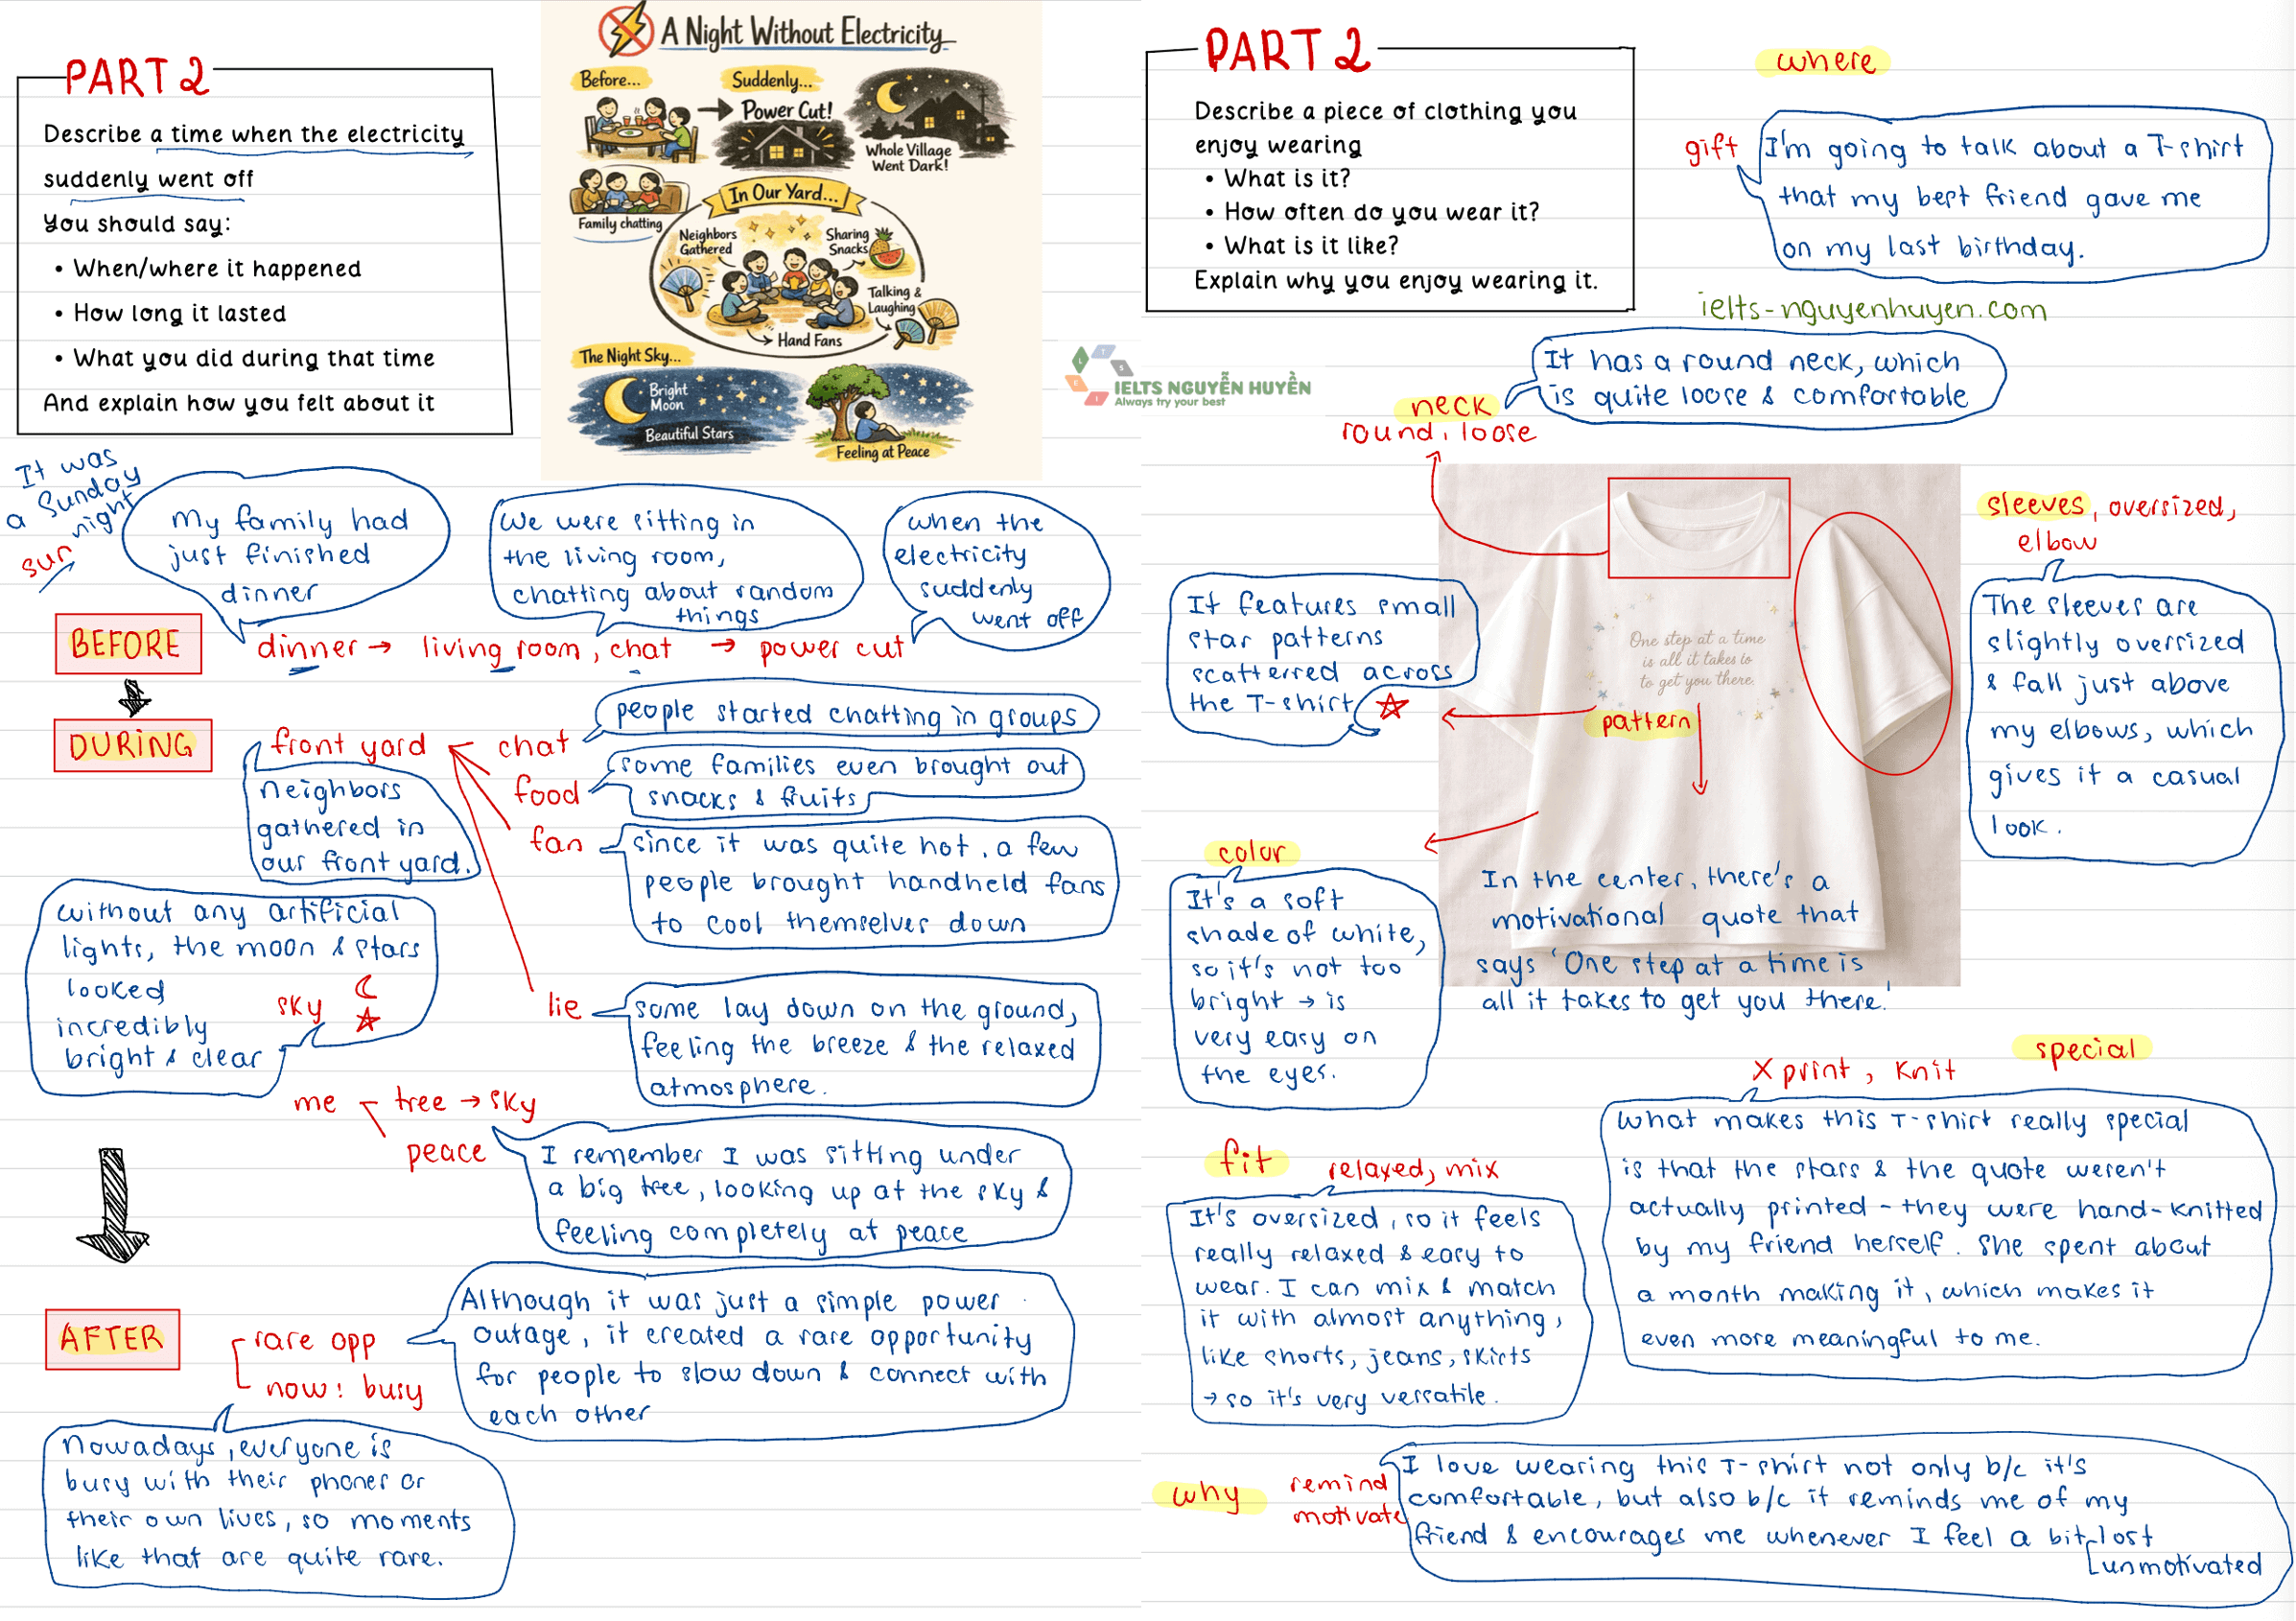 PART 2
Describe a time when the electricity
suddenly went off
You should say:
• When/where it happened
• How long it lasted
• What you did during that time
And explain how you felt about it
A Night Without Electricity
Before...
Suddenly...
Power Cut!
Whole Village
Went Dark!
Family chatting
In Our Yard...
Neighbors
Gathered
Sharing
Snacks
Talking &
Laughing
Hand Fans
The Night Sky...
Bright
Moon
Beautiful Stars
Feeling at Peace
It was
a Sunday
night
sun
My family had
just finished
dinner
We were sitting in
the living room,
chatting about random
things
when the
electricity
suddenly
went off
BEFORE
dinner → living room, chat → power cut
DURING
front yard
chat
people started chatting in groups
food
some families even brought out
snacks & fruits
fan
since it was quite hot, a few
people brought handheld fans
to cool themselves down
neighbors
gathered in
our front yard.
without any artificial
lights, the moon & stars
looked
incredibly
bright & clear
sky
lie
some lay down on the ground,
feeling the breeze & the relaxed
atmosphere.
me
tree → sky
peace
I remember I was sitting under
a big tree, looking up at the sky &
feeling completely at peace
AFTER
rare opp
now: busy
Although it was just a simple power
outage, it created a rare opportunity
for people to slow down & connect with
each other
Nowadays, everyone is
busy with their phones or
their own lives, so moments
like that are quite rare.
IELTS NGUYỄN HUYỀN
Always try your best
PART 2
Describe a piece of clothing you
enjoy wearing
• What is it?
• How often do you wear it?
• What is it like?
Explain why you enjoy wearing it.
where
gift
I'm going to talk about a T-shirt
that my best friend gave me
on my last birthday.
ielts-nguyenhuyen.com
It has a round neck, which
is quite loose & comfortable
neck
round, loose
sleeves, oversized,
elbow
The sleeves are
slightly oversized
& fall just above
my elbows, which
gives it a casual
look.
It features small
star patterns
scatterred across
the T-shirt
One step at a time
is all it takes to
to get you there.
pattern
color
It's a soft
shade of white,
so it's not too
bright → is
very easy on
the eyes.
In the center, there's a
motivational quote that
says 'One step at a time is
all it takes to get you there.'
special
X print, knit
What makes this T-shirt really special
is that the stars & the quote weren't
actually printed - they were hand-knitted
by my friend herself. She spent about
a month making it, which makes it
even more meaningful to me.
fit
relaxed, mix
It's oversized, so it feels
really relaxed & easy to
wear. I can mix & match
it with almost anything,
like shorts, jeans, skirts
→ so it's very versatile.
why
remind
motivate
I love wearing this T-shirt not only b/c it's
comfortable, but also b/c it reminds me of my
friend & encourages me whenever I feel a bit lost
unmotivated